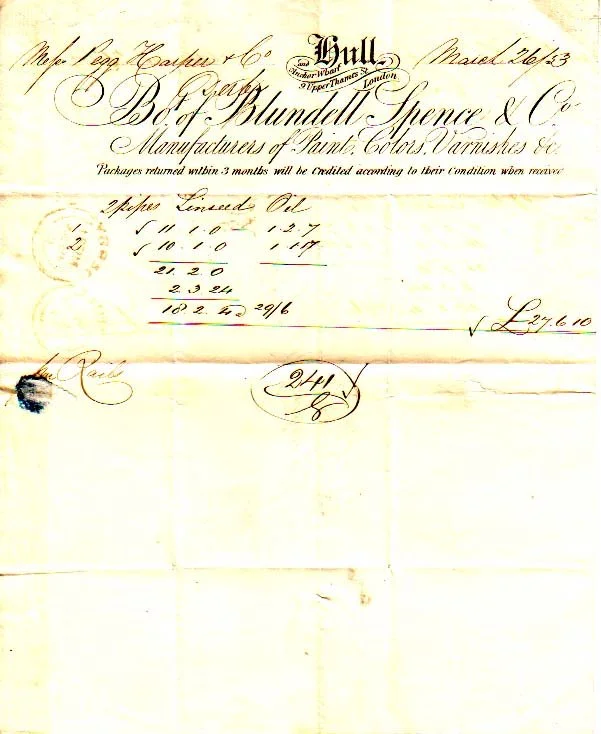 Hull.
Messrs Pegg Harper & Co March 26/53
and
Anchor Wharf
9 Upper Thames St
London
Derby
Bot. of Blundell Spence & Co.
Manufacturers of Paint, Colors, Varnishes &c
Packages returned within 3 months will be Credited according to their Condition when receive
2 pipes Linseed Oil
1 11.1.0 1.2.7
2 10.1.0 1.1.17
21.2.0
2.3.24
18.2.4 29/6 £27.6.10
Rails
241